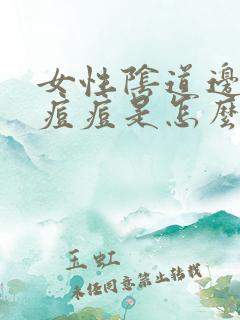 女性陰道邊
痘痘是怎麼
玉虹
未经同意禁止转载